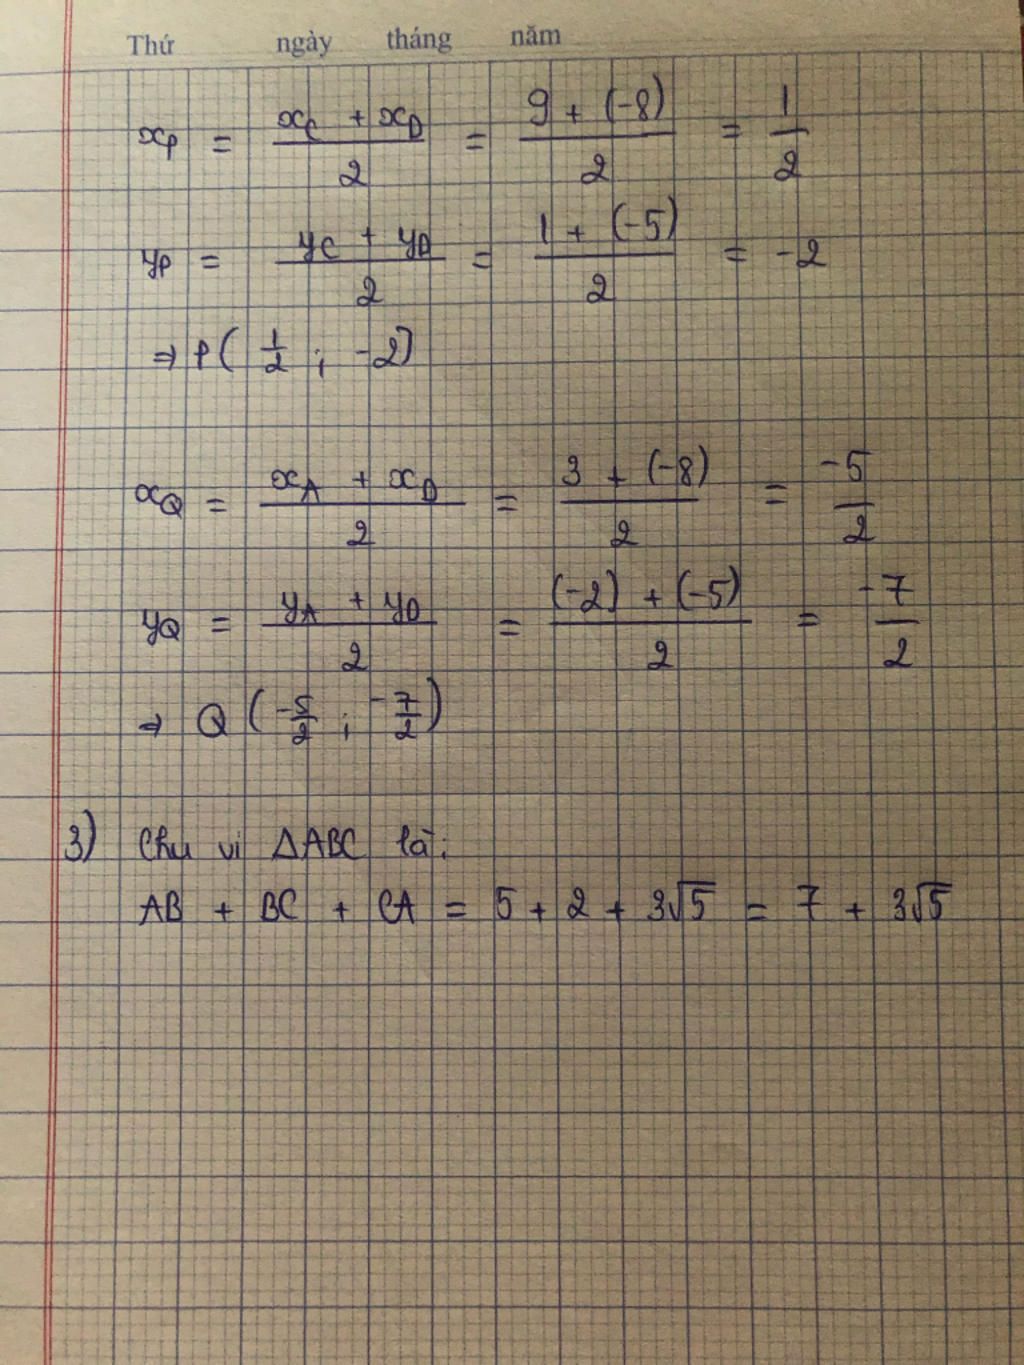 Thứ ngày tháng năm
x_P = (x_C + x_D)/2 = (9 + (-8))/2 = 1/2
y_P = (y_C + y_D)/2 = (1 + (-5))/2 = -2
⇒ P( 1/2 ; -2)
x_Q = (x_A + x_D)/2 = (3 + (-8))/2 = -5/2
y_Q = (y_A + y_D)/2 = ((-2) + (-5))/2 = -7/2
⇒ Q (-5/2 ; -7/2)
3) Chu vi ΔABC là:
AB + BC + CA = 5 + 2 + 3√5 = 7 + 3√5